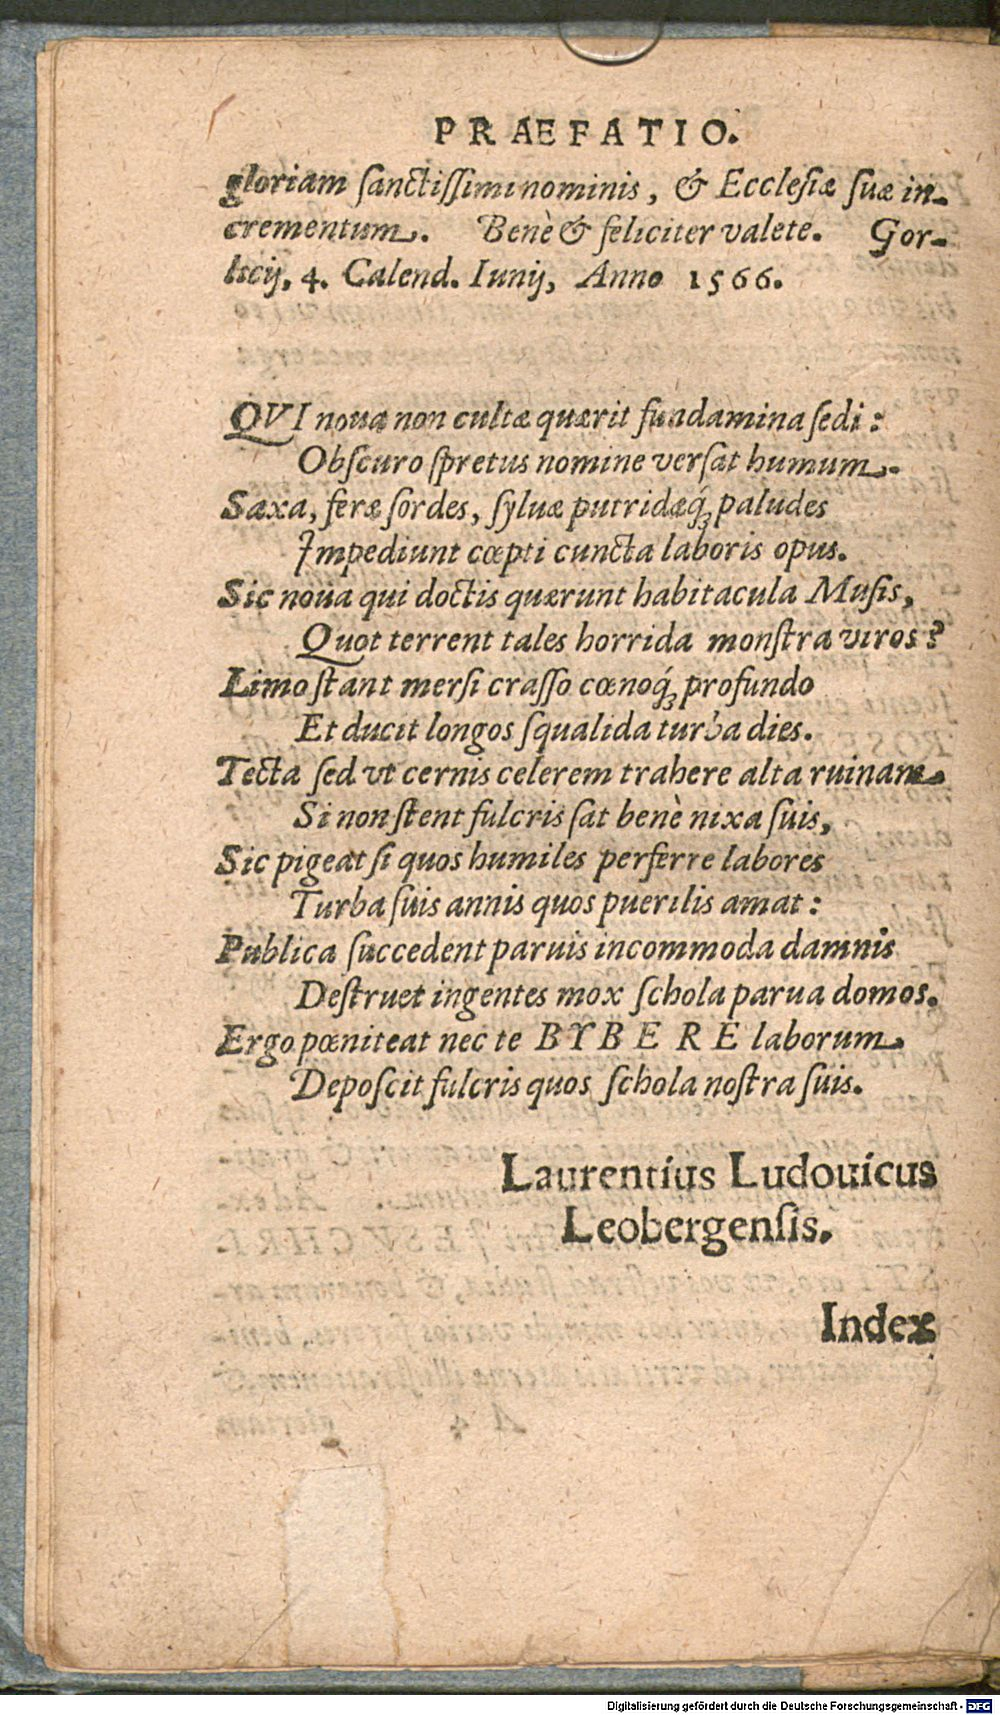 PRAEFATIO.
gloriam sanctissimi nominis, & Ecclesiæ suæ in-
crementum. Benè & feliciter valete. Gor-
licij, 4. Calend. Iunij, Anno 1566.
QVI noua non cultæ quærit fundamina sedi:
Obscuro spretus nomine versat humum.
Saxa, feræ sordes, syluæ putridæq́; paludes
Impediunt cœpti cuncta laboris opus.
Sic noua qui doctis quærunt habitacula Musis,
Quot terrent tales horrida monstra viros?
Limo stant mersi crasso cœnoq́; profundo
Et ducit longos squalida turba dies.
Tecta sed vt cernis celerem trahere alta ruinam
Si non stent fulcris sat benè nixa suis,
Sic pigeat si quos humiles perferre labores
Turba suis annis quos puerilis amat:
Publica succedent paruis incommoda damnis
Destruet ingentes mox schola parua domos.
Ergo pœniteat nec te BYBERE laborum
Deposcit fulcris quos schola nostra suis.
Laurentius Ludouicus
Leobergensis.
Index
Digitalisierung gefördert durch die Deutsche Forschungsgemeinschaft - DFG